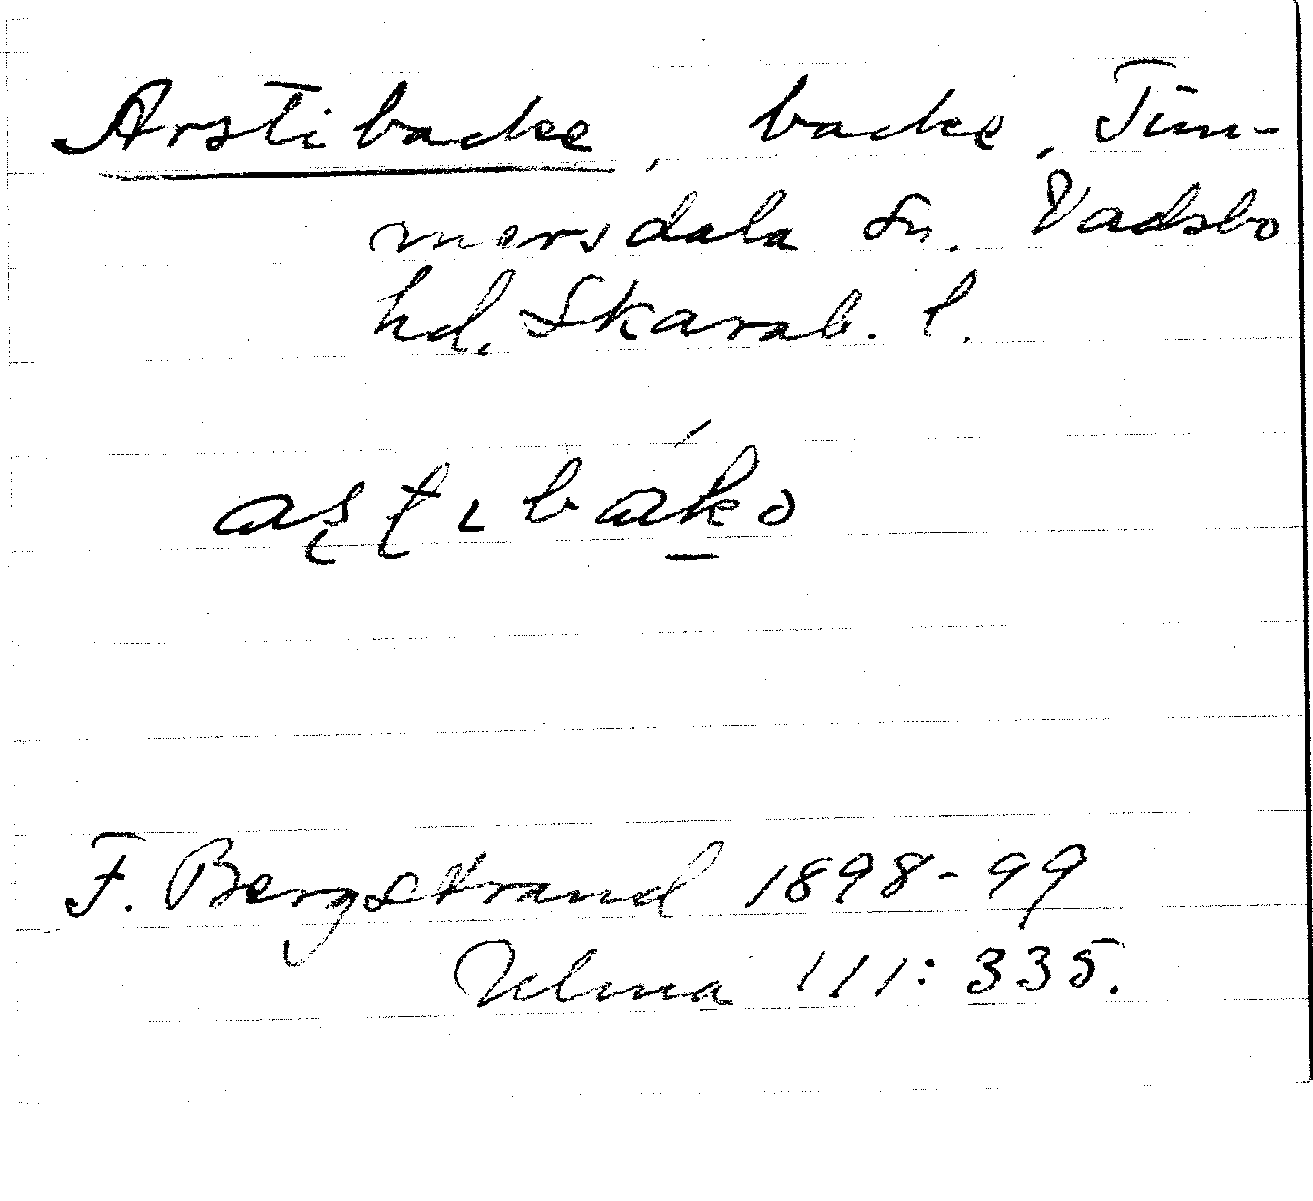 Arstibacke, backe, Tim-
mersdala sn. Vadsbo
hd. Skarab. l.
aʂʈɩbákə
F. Bergstrand 1898-99
Ulma 111:335.